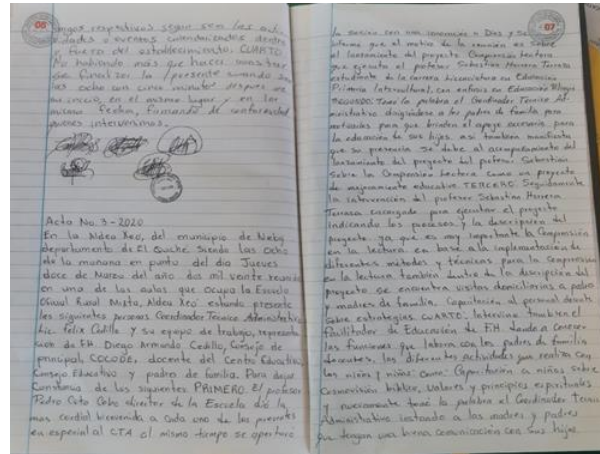 06
cargos respectivos según sean las acti-
vidades o eventos calendarizados dentro
o fuera del establecimiento. CUARTO
No habiendo más que hacer constar
se finaliza la presente cuando son
las ocho con cinco minutos después de
su inicio, en el mismo lugar y en la
misma fecha, firmando de conformidad
quienes intervenimos.
Acta No. 3-2020
En la Aldea Xeo, del municipio de Nebaj
departamento de El Quiché siendo las ocho
de la mañana en punto del día Jueves
doce de Marzo del año dos mil veinte reunidos
en una de las aulas que ocupa la Escuela
Oficial Rural Mixta, Aldea Xeó estando presente
las siguientes personas Coordinador Técnico Administrativo
Lic. Felix Cedillo y su equipo de trabajo, representa
ción de FH Diego Armando Cedillo, Consejo de
principal, COCODE, docente del Centro Educativo
Consejo Educativo y padres de familia. Para dejar
Constancia de los siguientes PRIMERO. El profesor
Pedro Ceto Cobo director de la Escuela dio la
más cordial bienvenida a cada uno de los presentes
en especial al CTA al mismo tiempo se apertura
07
la sesión con una a Dios y se
informa que el motivo de la reunión es sobre
el lanzamiento del proyecto Comprensión Lectora
que ejecuta el profesor Sebastian Herrera Terraza
estudiante de la carrera Licenciatura en Educación
Primaria Intercultural, con enfasis en Educación Bilingüe
SEGUNDO: Tomó la palabra el Coordinador Técnico Ad-
ministrativo dirigiéndose a los padres de familia para
para que brinden el apoyo necesario para
la educación de sus hijos, así también manifiesta
que su presencia se debe al acompañamiento del
lanzamiento del proyecto del profesor Sebastian
Sobre la Comprensión Lectora como un proyecto
de mejoramiento educativo TERCERO. Seguidamente
la intervención del profesor Sebastian Herrera
Terraza encargado para ejecutar el proyecto
indicando los procesos y la descripción del
proyecto ya que es muy importante la Comprensión
en la lectura en base a la implementación de
diferentes métodos y técnicas para la comprensión
en la lectura también dentro de la descripción del
proyecto se encuentra visitas domiciliarias a padres
y madres de familia, Capacitación al personal docente
sobre estrategias CUARTO: Interviene también el
Facilitador de Educación de FH dando a conocer
las funciones que labora con los padres de familia
docentes, las diferentes actividades que realiza con
los niñas y niños como: Capacitación a niños sobre
Cosmovisión bíblica, Valores y principios espirituales
y nuevamente tomó la palabra el Coordinador Técnico
Administrativo instando a las madres y padres
que tengan una buena comunicación con sus hijos